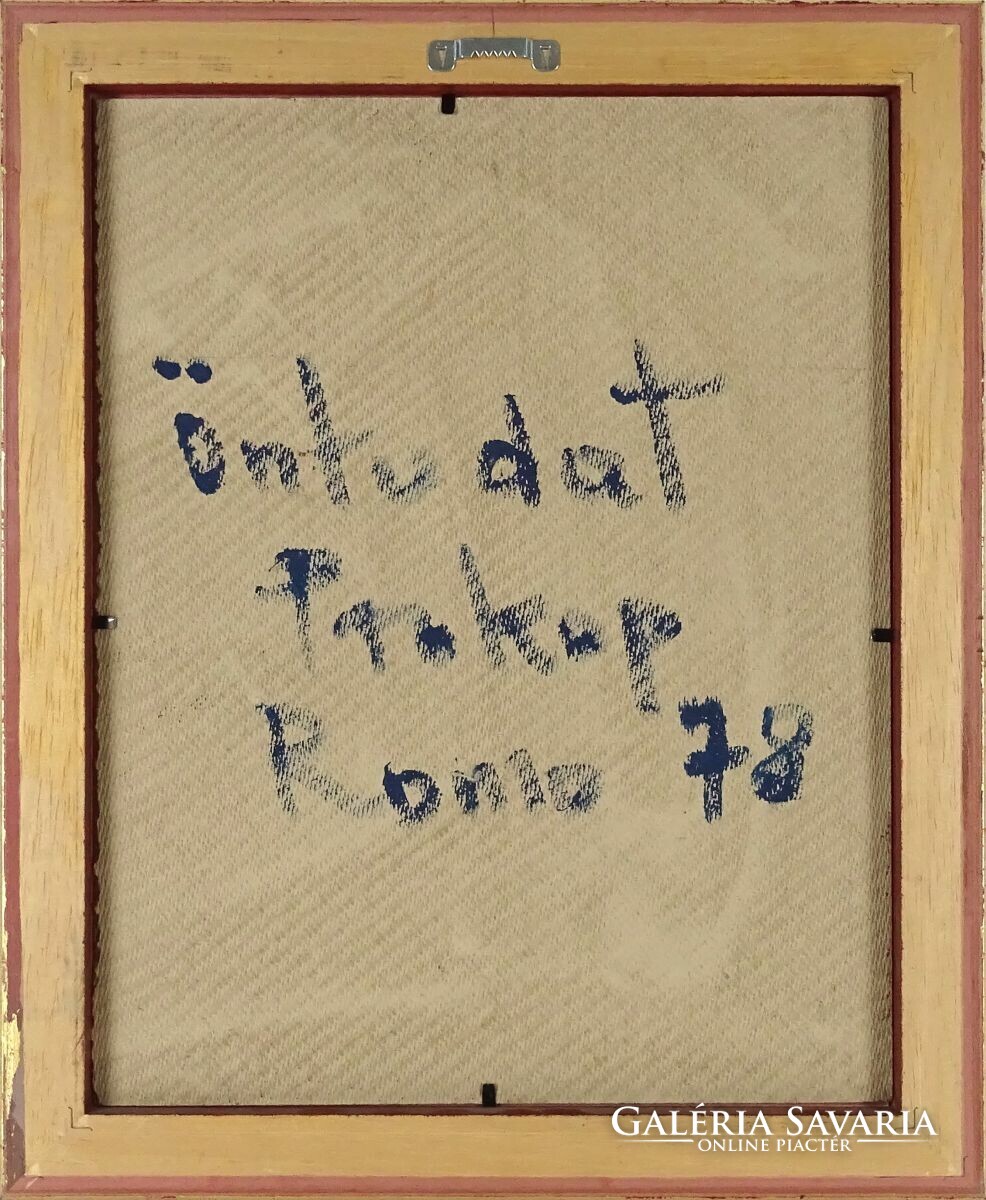 öntudat
Prokop
Roma 78
GALÉRIA SAVARIA
ONLINE PIACTÉR